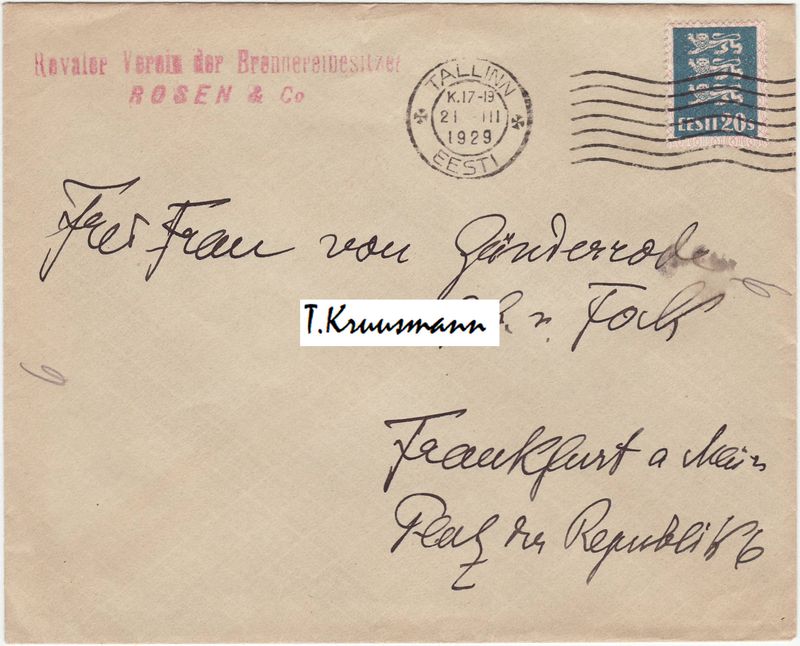 Revaler Verein der Brennereibesitzer
ROSEN & Co
TALLINN
K.17-19
21 III
1929
EESTI
EESTI 20 S
Frei Frau von Günderrode
T.Kruusmann
v. Fock
Frankfurt a Main
Platz der Republik 6